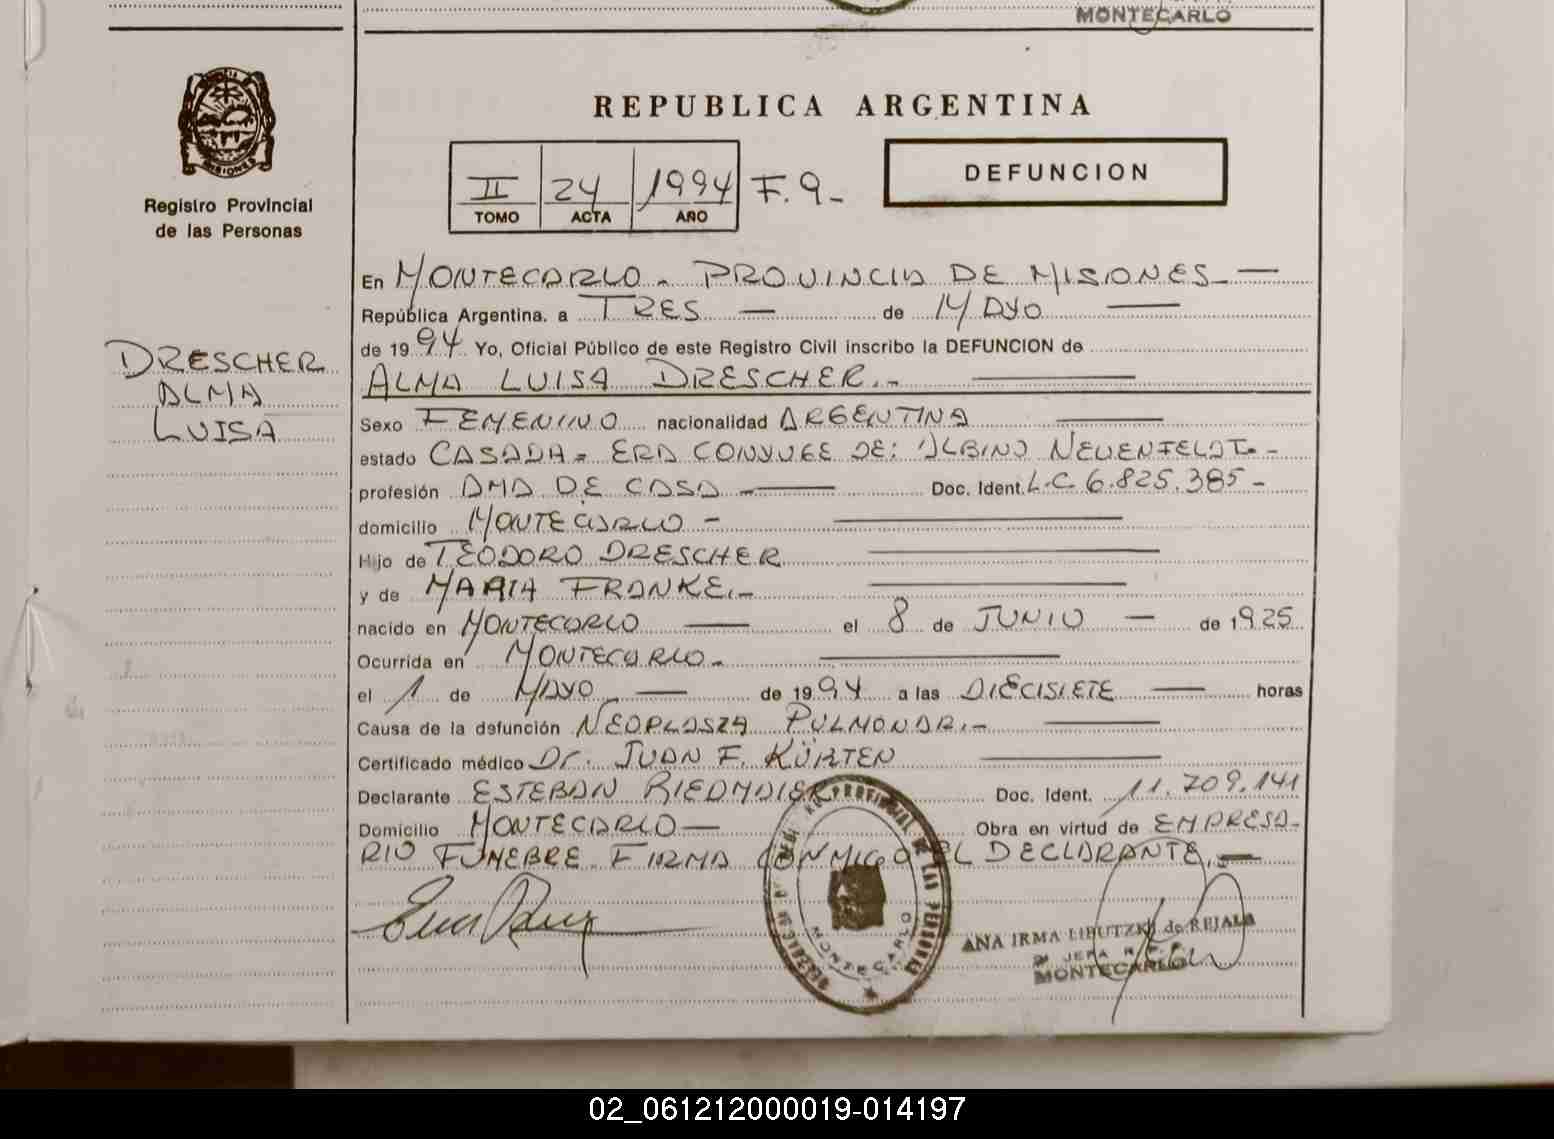 MONTECARLO
REPUBLICA ARGENTINA
MISIONES
Registro Provincial
de las Personas
II 24 1994 F. 9.-
TOMO ACTA AÑO
DEFUNCION
En MONTECARLO. PROVINCIA DE MISIONES.-
República Argentina. a TRES — de MAYO —
de 1994 Yo, Oficial Público de este Registro Civil inscribo la DEFUNCION de
ALMA LUISA DRESCHER.-
DRESCHER
ALMA
LUISA
Sexo FEMENINO nacionalidad ARGENTINA
estado CASADA= ERA CONYUGE DE: ALBINO NEUENFELDT.-
profesión AMA DE CASA — Doc. Ident. L.C 6.825.385-
domicilio MONTECARLO -
Hijo de TEODORO DRESCHER
y de MARIA FRANKE.-
nacido en MONTECARLO — el 8 de JUNIO — de 1925
Ocurrida en MONTECARLO-
el 1 de MAYO — de 1994 a las DIECISIETE — horas
Causa de la defunción NEOPLASIA PULMONAR.-
Certificado médico Dr. JUAN F. KÜRTEN
Declarante ESTEBAN RIEDMAIER Doc. Ident. 11.709.141
Domicilio MONTECARLO — Obra en virtud de EMPRESA-
RIO FUNEBRE FIRMA CONMIGO EL DECLARANTE.-
PROVINCIAL DE LAS PERSONAS
MONTECARLO
ANA IRMA LIBUTZKI de REJALA
JEFA R. P. P.
MONTECARLO
02_061212000019-014197